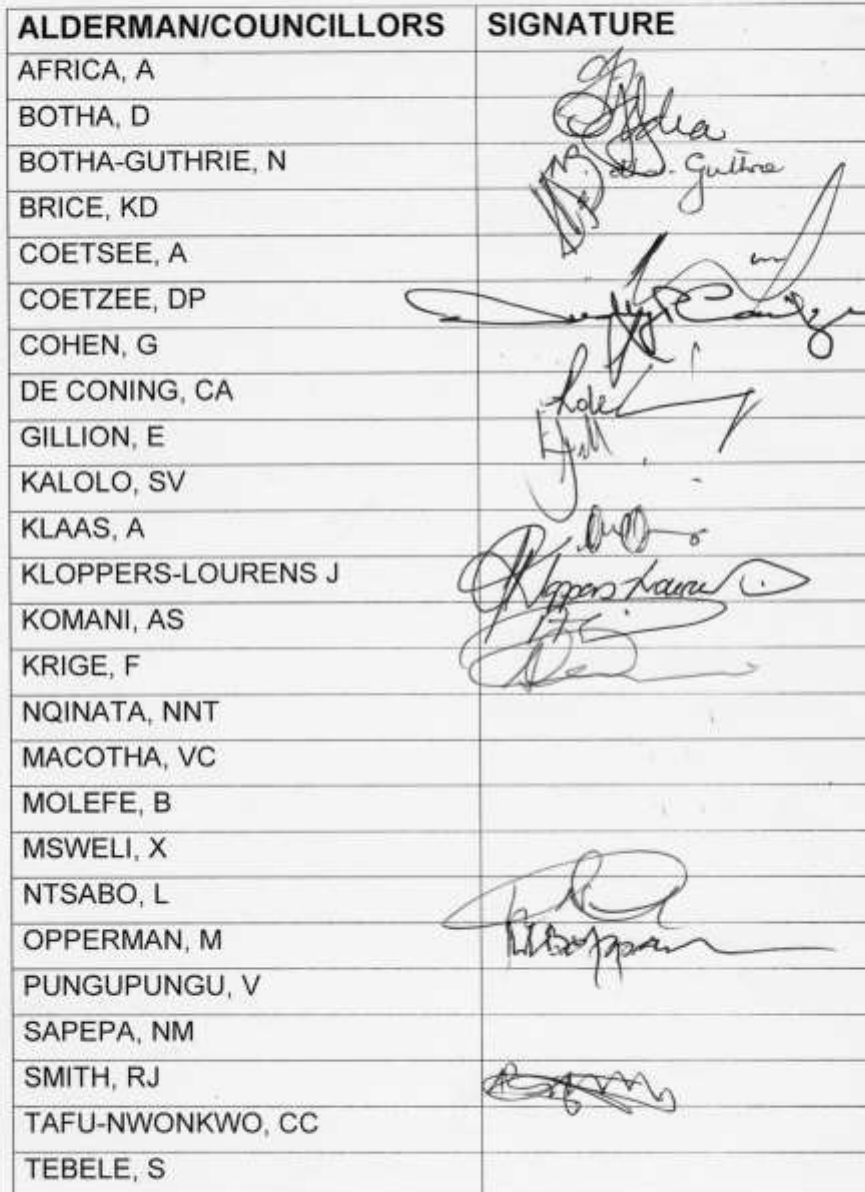 ALDERMAN/COUNCILLORS SIGNATURE
AFRICA, A
BOTHA, D
BOTHA-GUTHRIE, N Guthrie
BRICE, KD
COETSEE, A
COETZEE, DP
COHEN, G
DE CONING, CA
GILLION, E
KALOLO, SV
KLAAS, A
KLOPPERS-LOURENS J Kloppers Louren
KOMANI, AS
KRIGE, F
NQINATA, NNT
MACOTHA, VC
MOLEFE, B
MSWELI, X
NTSABO, L
OPPERMAN, M
PUNGUPUNGU, V
SAPEPA, NM
SMITH, RJ
TAFU-NWONKWO, CC
TEBELE, S